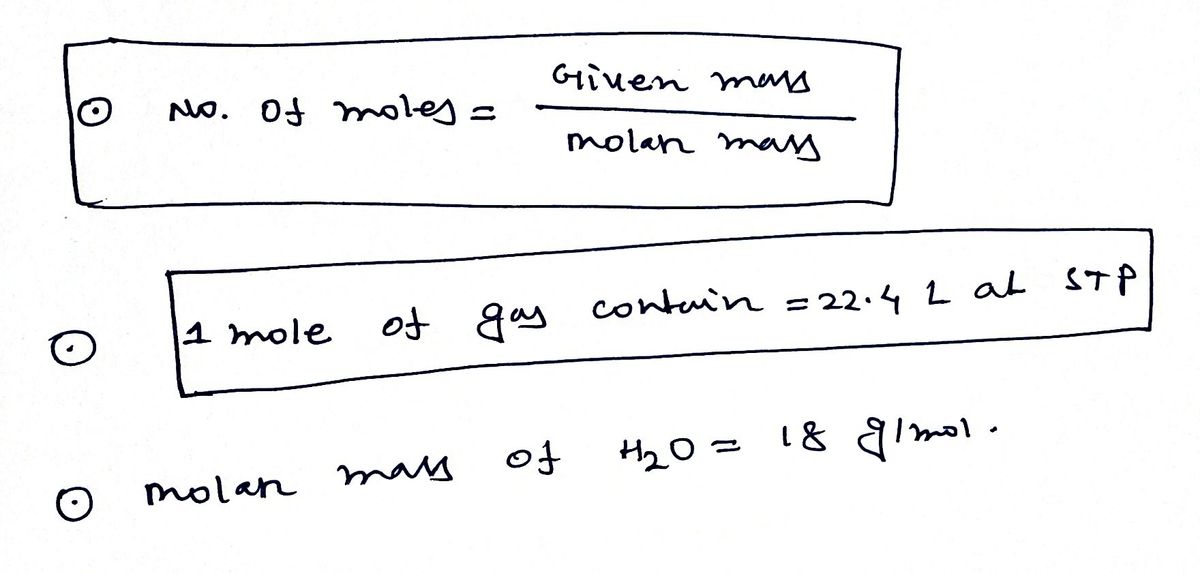 ⊙ No. of moles = Given mass / molar mass
⊙ 1 mole of gas contain = 22.4 L at STP
⊙ molar mass of H₂O = 18 g/mol.